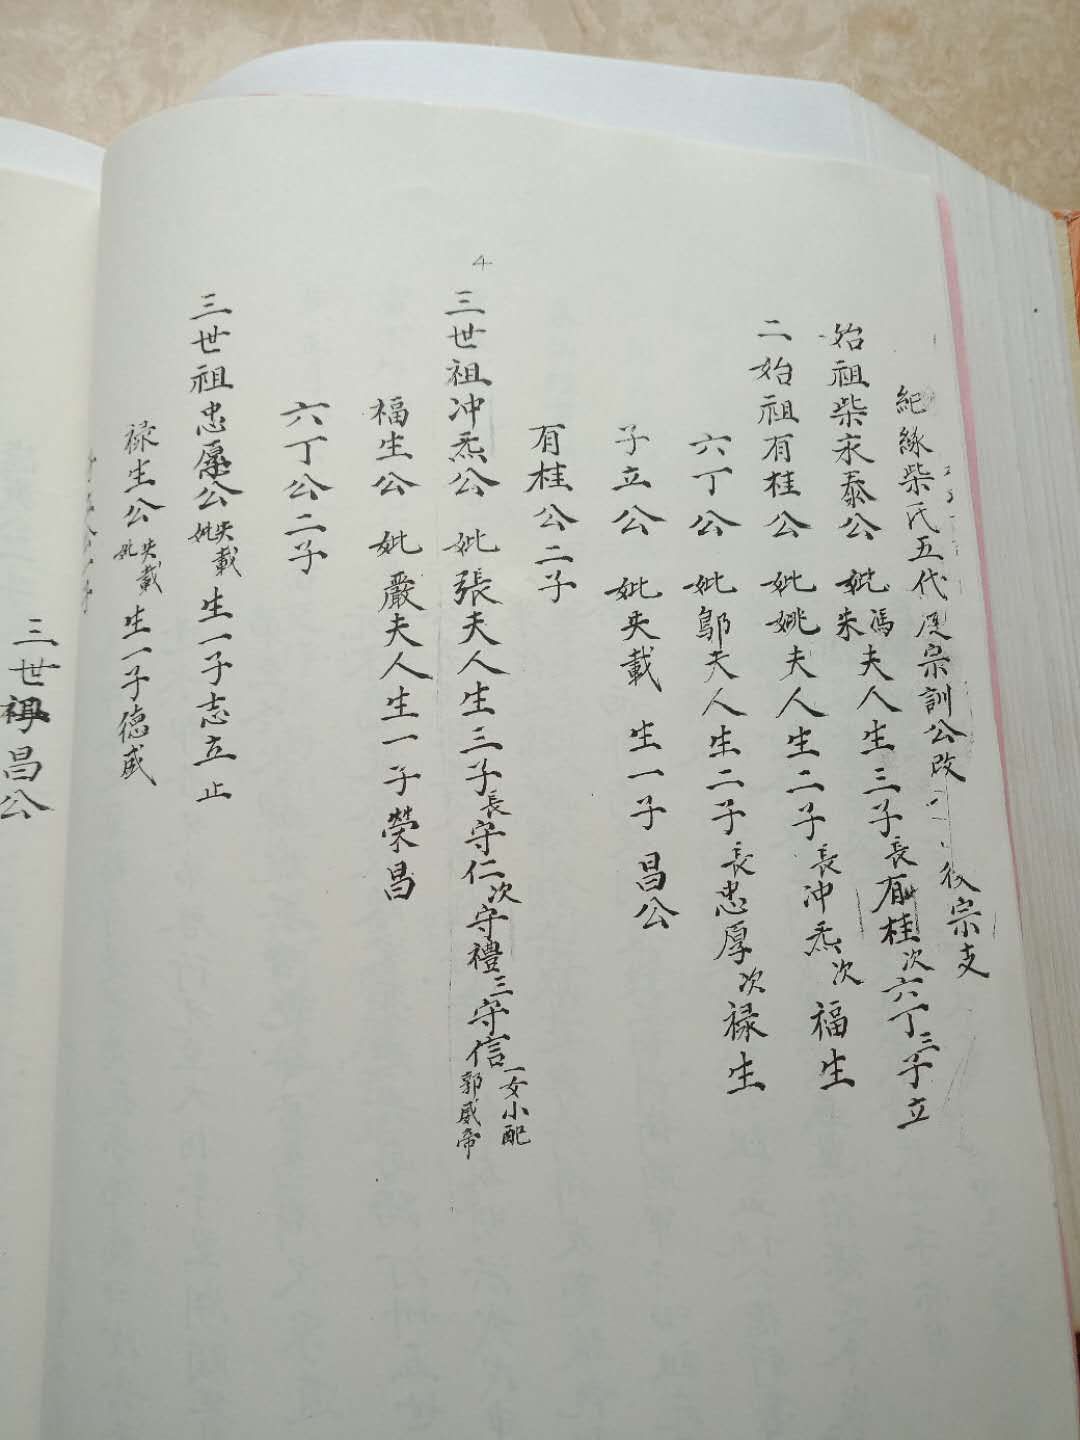 紀緣柴氏五代 宗訓公改 後宗支
始祖柴永泰公 妣朱馮夫人生三子長有桂次六丁三子立
二始祖有桂公 妣姚夫人生二子長冲炁次福生
六丁公 妣鄔夫人生二子長忠厚次禄生
子立公 妣失載 生一子昌公
有桂公二子
4
三世祖冲炁公 妣張夫人生三子長守仁次守禮三守信一女小配郭威帝
福生公 妣嚴夫人生一子榮昌
六丁公二子
三世祖忠厚公妣失載生一子志立止
禄生公妣失載生一子德威
三世祖昌公